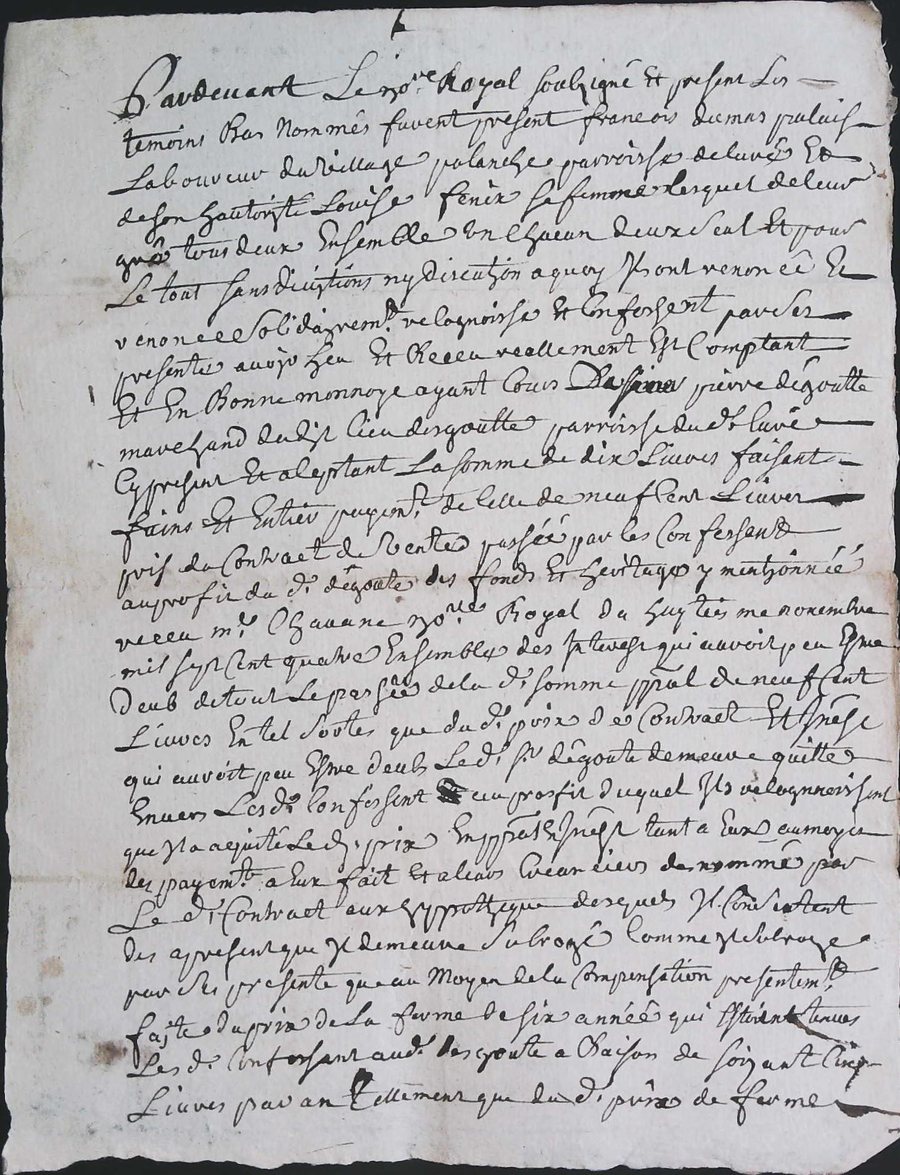 Pardevant Le no.re Royal soubsigné Et présent Les
temoins Bas Nommés furent present francois dumas palais
Laboureur du Village palanche parroisse de luré Et
de son hauthorité Louise fenix sa femme Lesquel de leur
gré tous deux Ensemble un Chacun deux seul Et pour
Le tout sans divitions ny dicution a quoy Ils ont renoncé Et
renoncee Solidairem.t recognoisse Et Confessent par Ses
presente avoir heu Et Receu reallement Est Comptant
Et En Bonne monnoye ayant Cours De pierre dégoutte
marchand dudit lieu desgoutte parroisse du d.t luré
Cy present Et aceptant La somme de dix Livres faisant
fains Et Entier payem.t de Celle de neuf Cent Livres
pris du Contract de Vente passée par les Confessent
au profit du d.t dégoute des fonds Et heritage y mentionnée
receu m.e Chavane no.re Royal du huytiesme novembre
mil sept Cent quatre Ensemble des Interest qui auroit peu Estre
deub de tout Le passée de la d.t somme ppal de neuf Cent
Livres En tel Sortes que du d.t prix de Contract Et Inest
qui auroit peu Estre deub Le d.t s.r dégoute demeure quitte
Envers Les d.t Confessent au profit duquel Ils recognoissent
que Il a aquité Le d.t prix En ppal Et Inest tant a Eux au moyen
des payem.t a Eux fait Et a leurs Creanciers denommé par
Le d.t Contract aux hyppotteque desquels Il Consentent
des apresent que Il demeure Subrogé Comme Il Subroge
par Ses presente que au Moyen de la Compensation presentem.t
faite du prix de La ferme de six année qui Estoient tenues
Les d.t Confessant au d.t desgoute a Raison de soixant Cinq
Livres par an tellement que du d.t prix de ferme